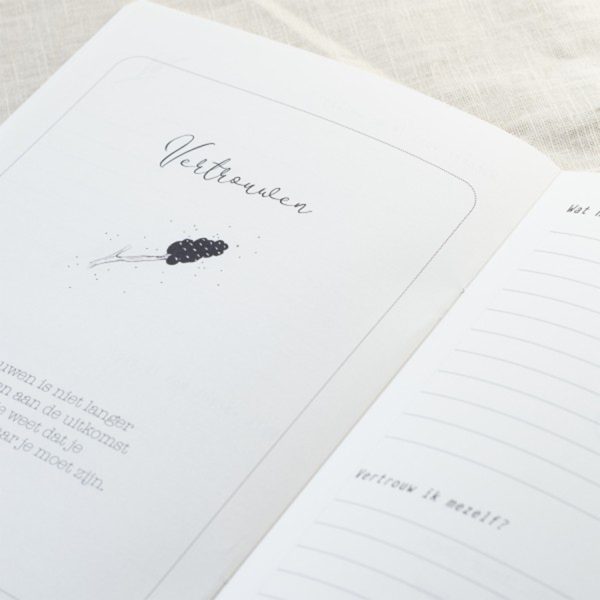 Vertrouwen
uwen is niet langer
en aan de uitkomst
e weet dat je
aar je moet zijn.
Wat
Vertrouw ik mezelf?